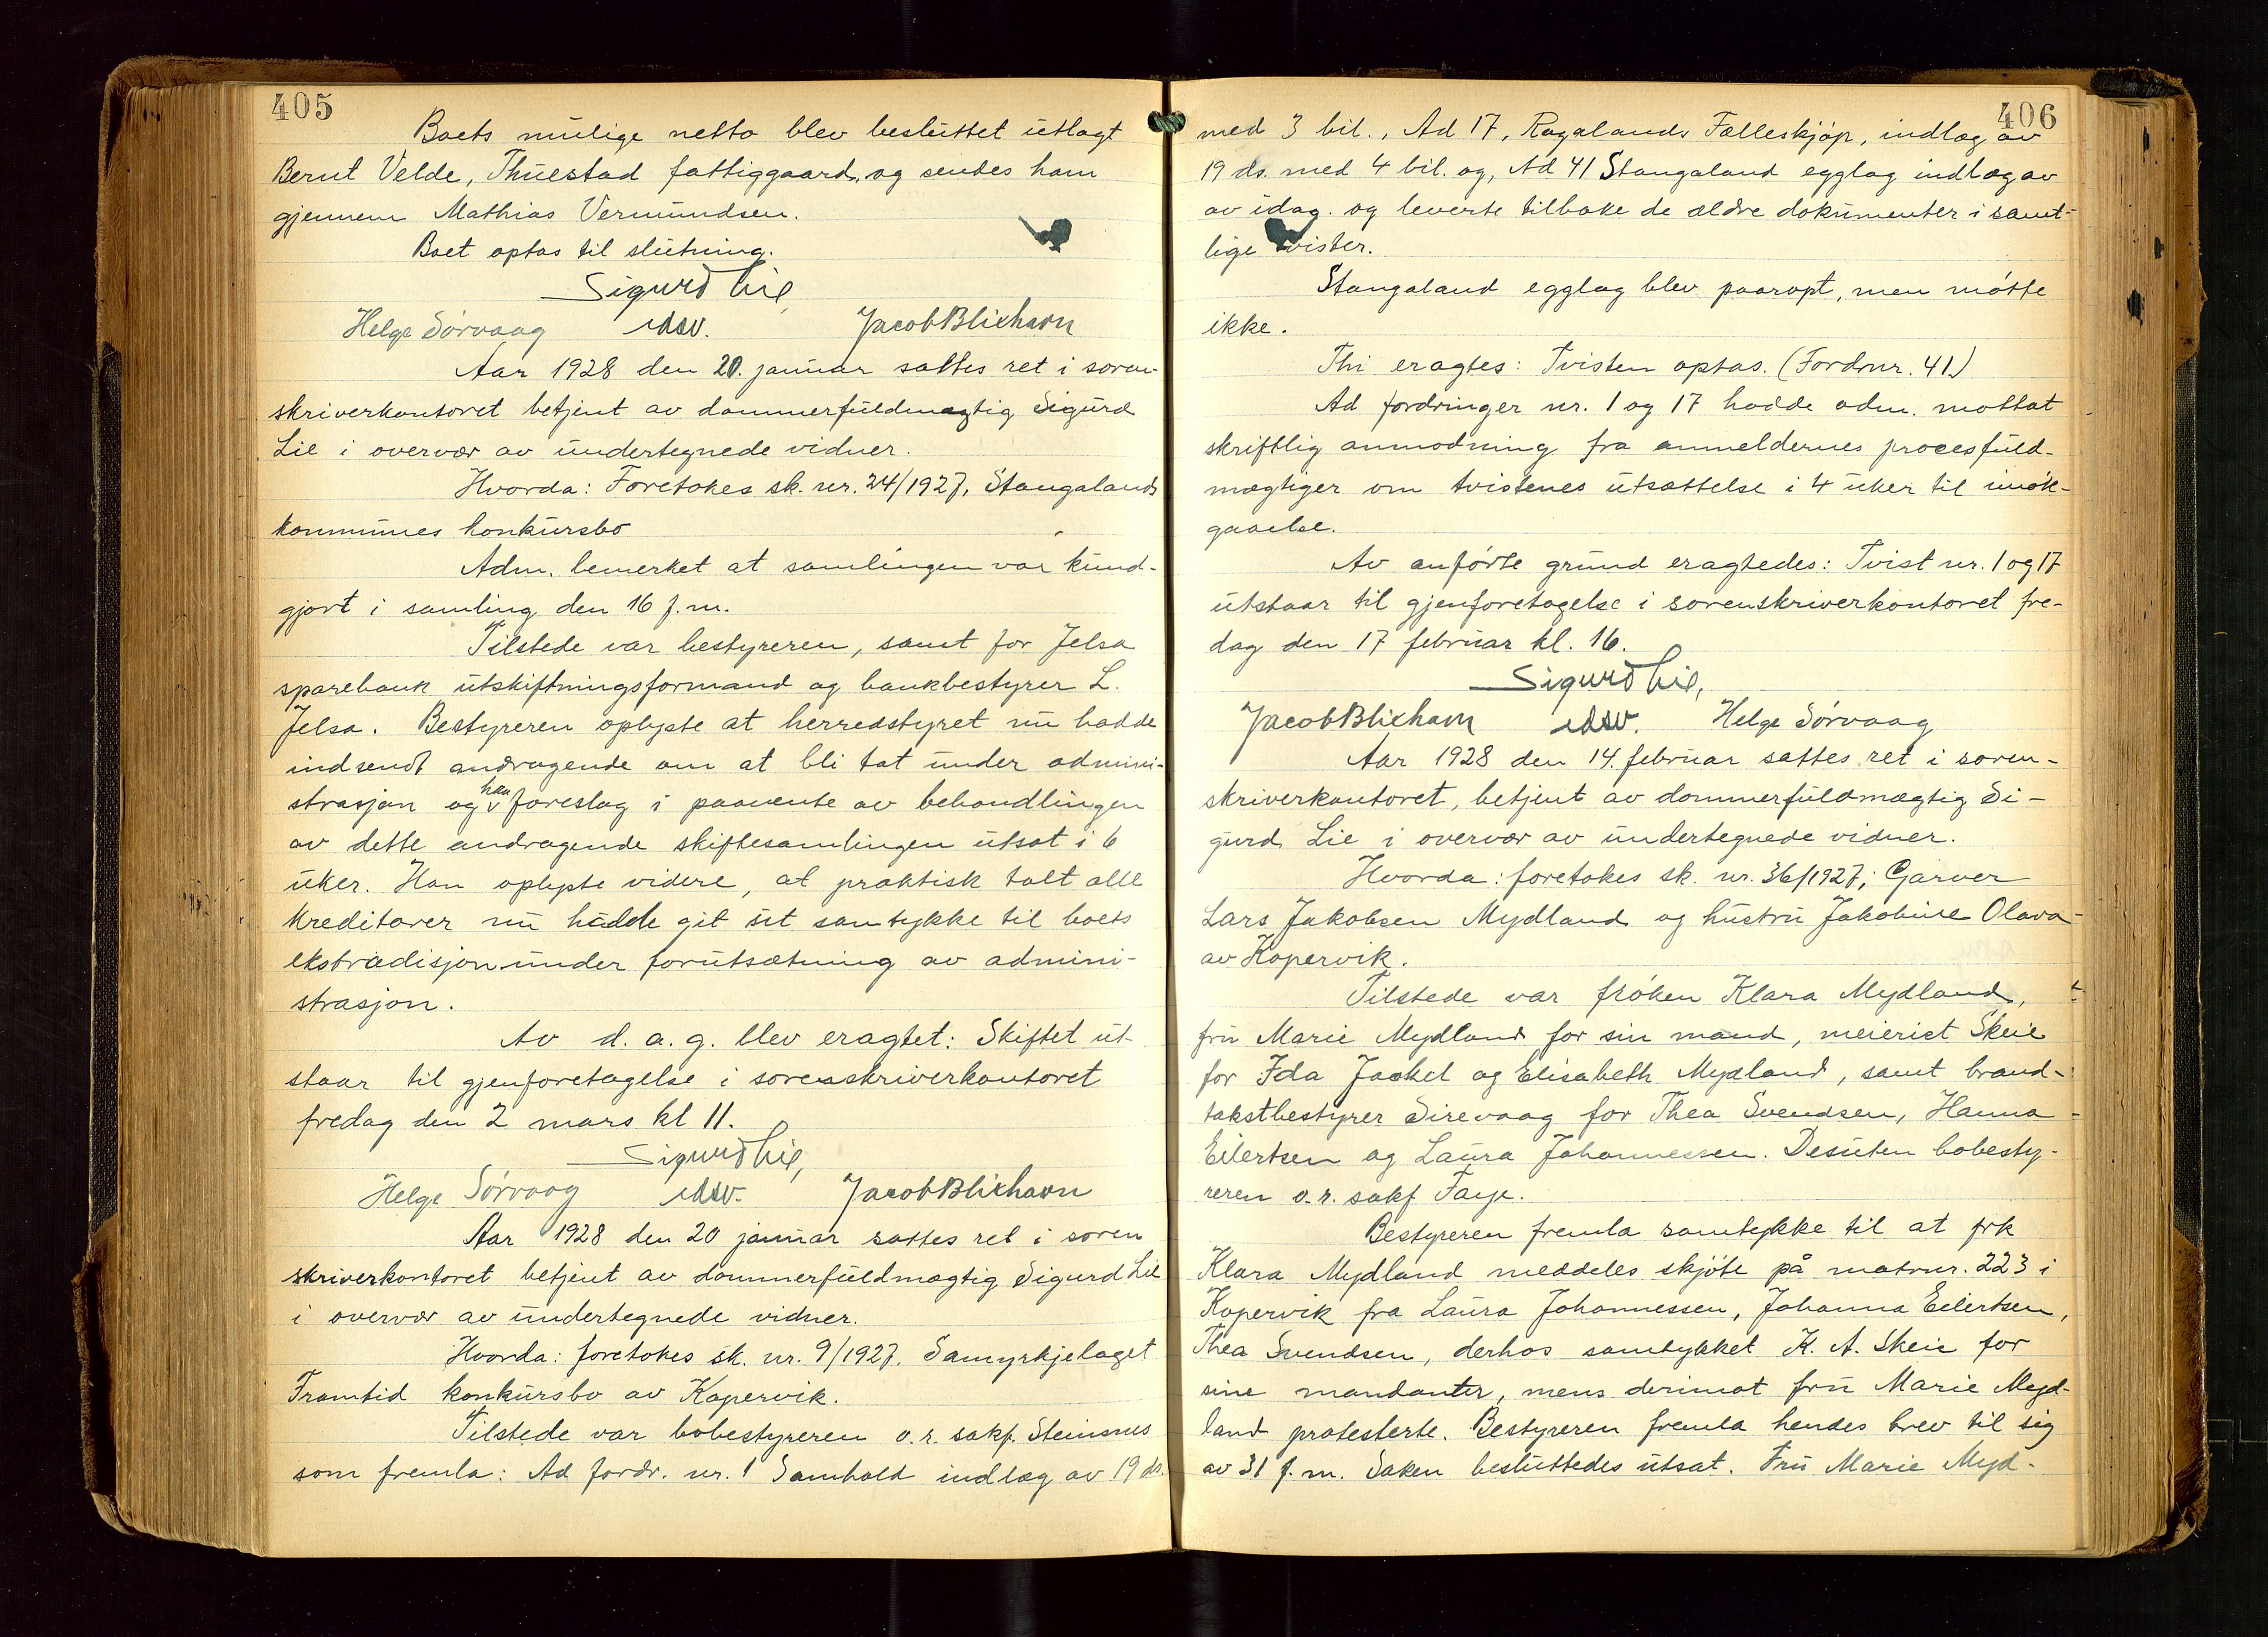 405
Boets mulige netto blev besluttet utlagt
Bernt Velde, Thuestad fattiggaard, og sendes ham
gjennem Mathias Vermundsen.
Boet optas til slutning.
Sigurd Lie,
Helge Sørvaag edsv. Jacob Blixhavn
Aar 1928 den 20. januar sattes ret i soren-
skriverkontoret betjent av dommerfuldmægtig Sigurd
Lie i overvær av undertegnede vidner.
Hvorda: Foretokes sk. nr. 24/1927, Stangalands
kommunes konkursbo
Adm. bemerket at samlingen var kund-
gjort i samling den 16 f.m.
Tilstede var bestyreren, samt for Jelsa
sparebank utskiftningsformand og bankbestyrer L.
Jelsa. Bestyreren oplyste at herredstyret nu hadde
indsendt andragende om at bli tat under admini-
strasjon og han foreslog i paavente av behandlingen
av dette andragende skiftesamlingen utsat i 6
uker. Han oplyste videre, at praktisk talt alle
kreditorer nu hadde git sit samtykke til boets
ekstradisjon under forutsætning av admini-
strasjon.
Av d. a. g. blev eragtet: Skiftet ut-
staar til gjenforetagelse i sorenskriverkontoret
fredag den 2 mars kl 11.
Sigurd Lie,
Helge Sørvaag edsv. Jacob Blixhavn
Aar 1928 den 20 januar sattes ret i soren
skriverkontoret betjent av dommerfuldmægtig Sigurd Lie
i overvær av undertegnede vidner.
Hvorda: foretokes sk. nr. 9/1927, Samyrkjelaget
Framtid konkursbo av Kopervik.
Tilstede var bobestyreren o.r. sakf. Steinsnes
som fremla: Ad fordr. nr. 1 Samhold indlæg av 19 ds.
406
med 3 bil., Ad 17, Rogalands Fælleskjøp, indlæg av
19 ds. med 4 bil. og, Ad 41 Stangaland egglag indlæg av
av idag. og leverte tilbake de ældre dokumenter i samt-
lige tvister.
Stangaland egglag blev paaropt, men møtte
ikke.
Thi eragtes: Tvisten optas. (Fordrnr. 41.)
Ad fordringer nr. 1 og 17 hadde adm. mottat
skriftlig anmodning fra anmeldernes procesfuld-
mægtiger om tvistenes utsættelse i 4 uker til imøte-
gaaelse.
Av anførte grund eragtedes: Tvist nr. 1 og 17
utstaar til gjenforetagelse i sorenskriverkontoret fre-
dag den 17 februar kl. 16.
Sigurd Lie,
Jacob Blixhavn edsv. Helge Sørvaag
Aar 1928 den 14. februar sattes ret i soren-
skriverkontoret, betjent av dommerfuldmægtig Si-
gurd Lie i overvær av undertegnede vidner.
Hvorda: foretokes sk. nr. 36/1927; Garver
Lars Jakobsen Mydland og hustru Jakobine Olava
av Kopervik.
Tilstede var frøken Klara Mydland,
fru Marie Mydland for sin mand, meieriet Skeie
for Ida Jackel og Elisabeth Mydland, samt brand-
takstbestyrer Sirevaag for Thea Svendsen, Hanna
Eilertsen og Laura Johannessen. Desuten bobesty-
reren o.r. sakf Faye.
Bestyreren fremla samtykke til at frk
Klara Mydland meddeles skjøte på matrnr. 223 i
Kopervik fra Laura Johannessen, Johanna Eilertsen,
Thea Svendsen, derhos samtykket K. A. Skeie for
sine mandanter, mens derimot fru Marie Myd-
land protesterte. Bestyreren fremla hendes brev til sig
av 31 f.m. Saken besluttedes utsat. Fru Marie Myd-